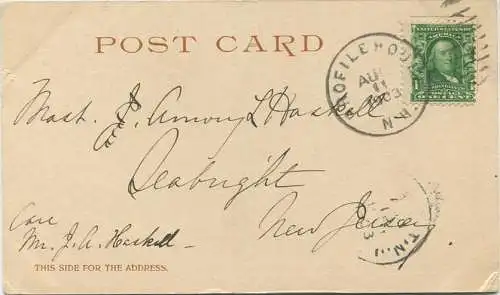 POST CARD
PROFILE HOUSE
AUG
11
1903
N.H.
1
Mast. J. Amory L Haskell
Seabright
New Jersey
Care
Mr. J. A. Haskell
T, N.J.
THIS SIDE FOR THE ADDRESS.